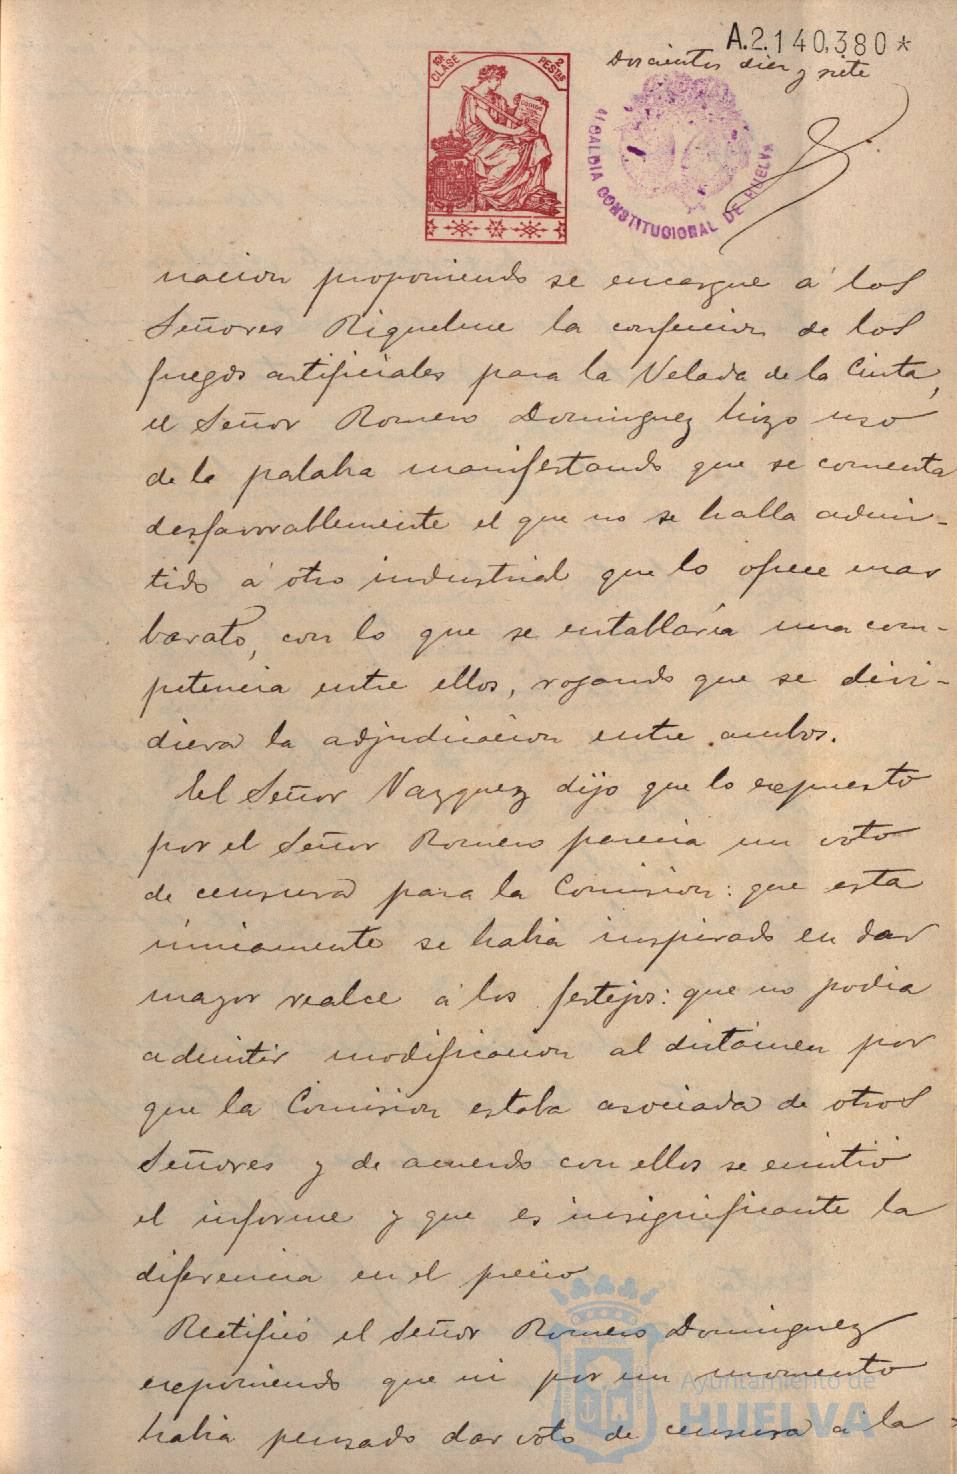 A.2.140,380*
Doscientos diez y siete
10ª CLASE
2 PESTAS
ALCALDIA CONSTITUCIONAL DE HUELVA
nacion proponiendo se encargue á los
Señores Riquelme la confeccion de los
fuegos artificiales para la Velada de la Cinta,
el Señor Romero Dominguez hizo uso
de la palabra manifestando que se comenta
desfavorablemente el que no se halla admi-
tido á otro industrial que lo ofrece mas
barato, con lo que se entablaría una com-
petencia entre ellos, rogando que se divi-
diera la adjudicacion entre ambos.
El Señor Vazquez dijo que lo expuesto
por el Señor Romero parecia un voto
de censura para la Comision: que esta
únicamente se habia inspirado en dar
mayor realce á los festejos: que no podia
admitir modificacion al dictámen por
que la Comision estaba asociada de otros
Señores y de acuerdo con ellos se emitió
el informe y que es insignificante la
diferencia en el precio
Rectificó el Señor Romero Dominguez
exponiendo que ni por un momento
habia pensado dar voto de censura á la
Ayuntamiento de
HUELVA